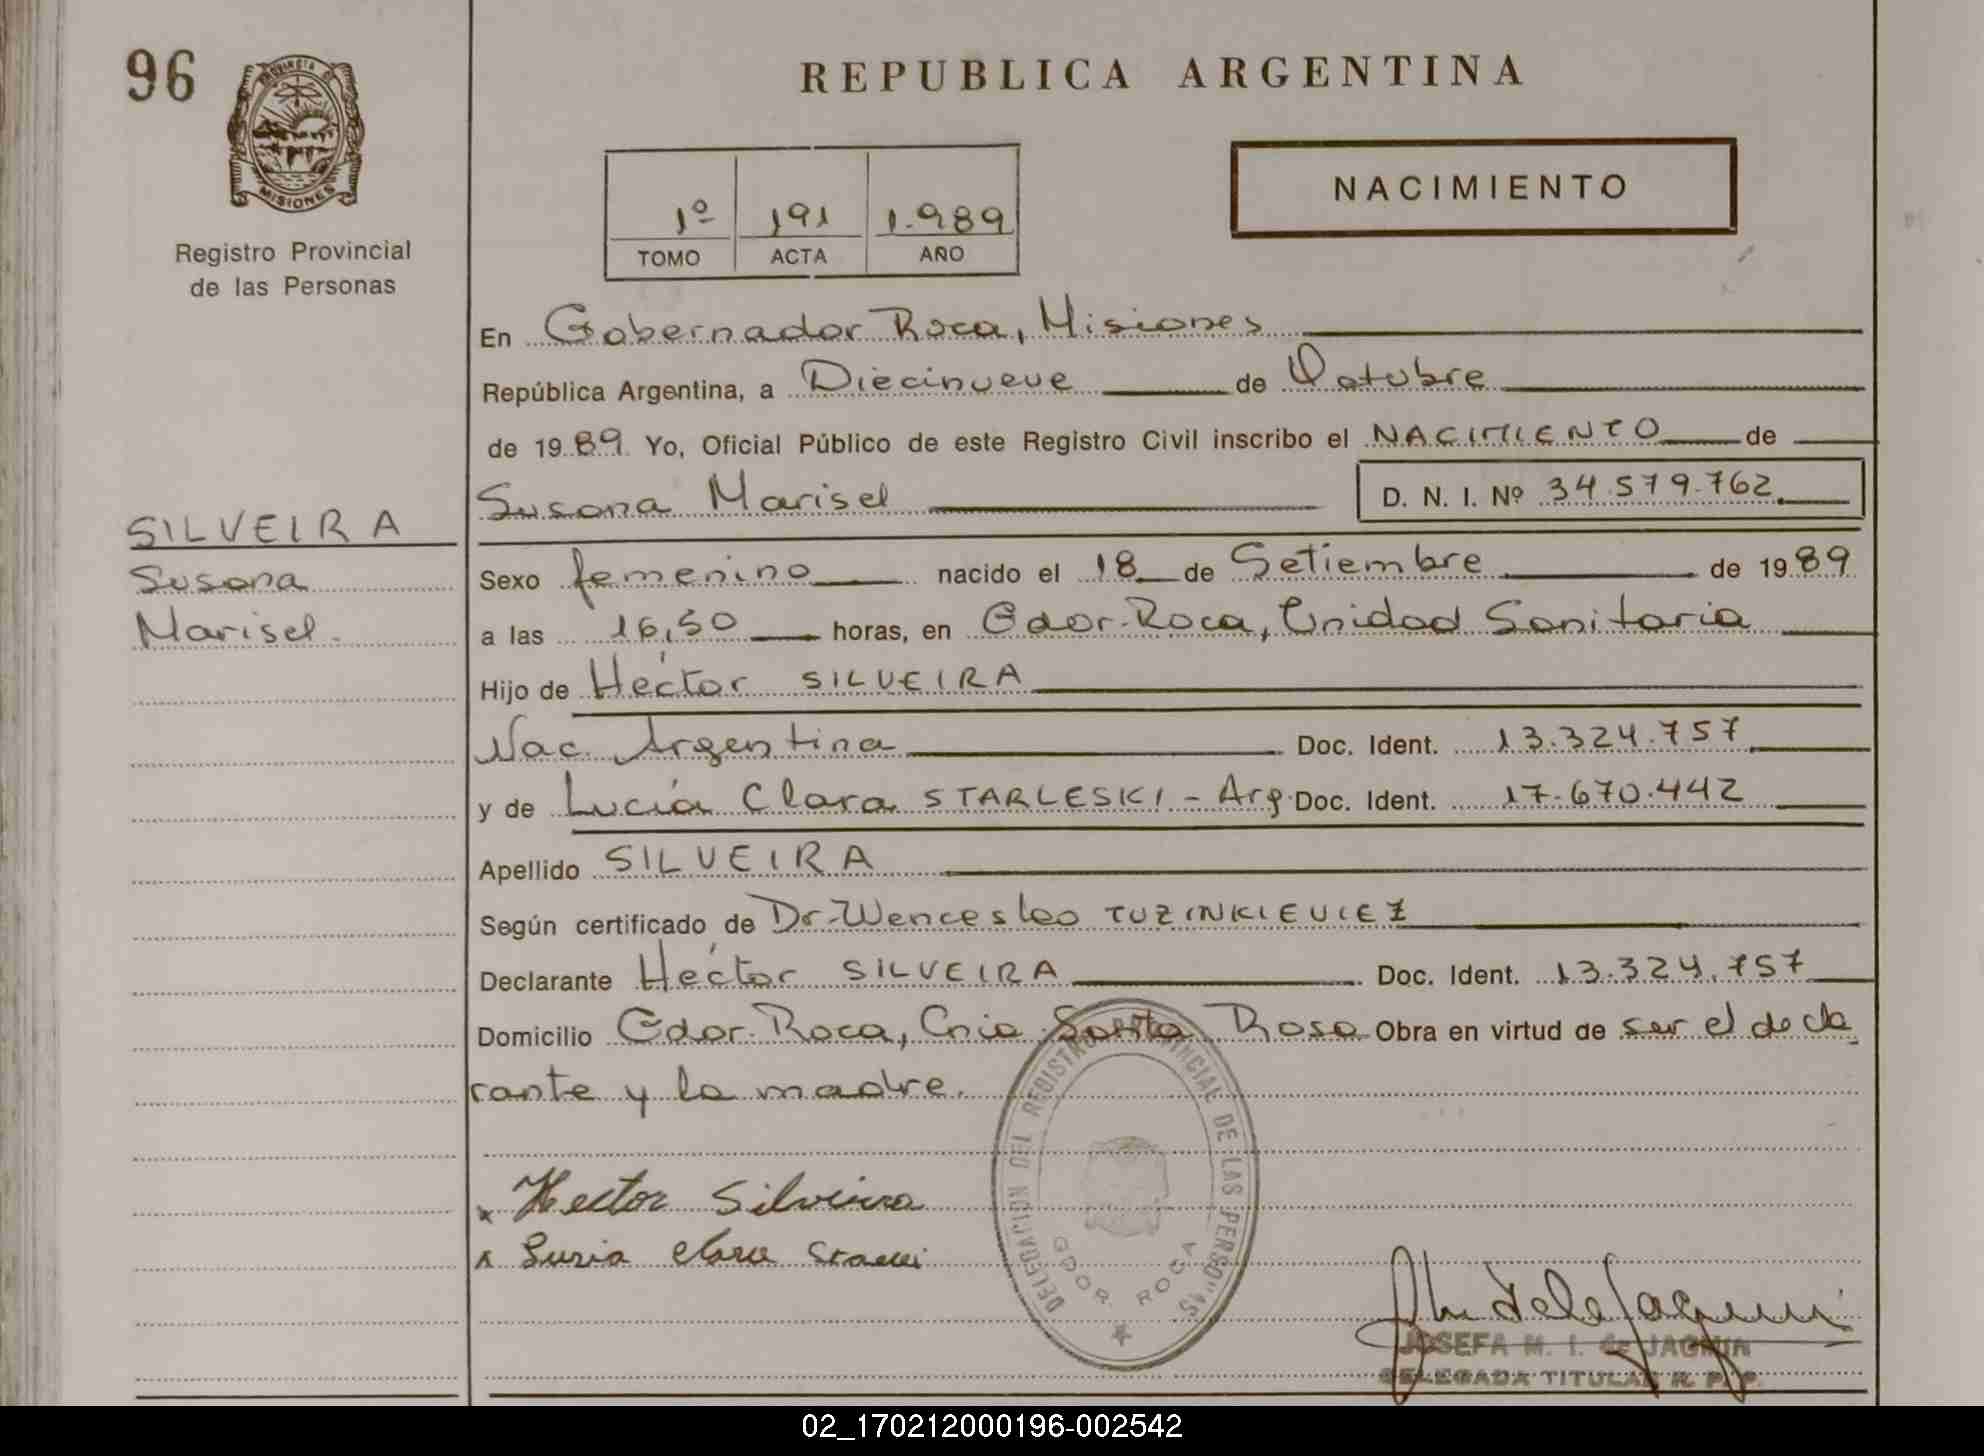 96
PROVINCIA DE
MISIONES
Registro Provincial
de las Personas
SILVEIRA
Susana
Marisel.
REPUBLICA ARGENTINA
1º 191 1.989
TOMO ACTA AÑO
NACIMIENTO
En Gobernador Roca, Misiones
República Argentina, a Diecinueve de Octubre
de 1989 Yo, Oficial Público de este Registro Civil inscribo el NACIMIENTO de
Susana Marisel D. N. I. Nº 34.579.762
Sexo femenino nacido el 18 de Setiembre de 1989
a las 16,50 horas, en Gdor. Roca, Unidad Sanitaria
Hijo de Héctor SILVEIRA
Nac. Argentina Doc. Ident. 13.324.757
y de Lucía Clara STARLESKI - Arg. Doc. Ident. 17.670.442
Apellido SILVEIRA
Según certificado de Dr. Wenceslao TUZINKIEVICZ
Declarante Héctor SILVEIRA Doc. Ident. 13.324.757
Domicilio Gdor. Roca, Cnia. Santa Rosa Obra en virtud de ser el decla
rante y la madre.
DELEGACION DEL REGISTRO PROVINCIAL DE LAS PERSONAS
GDOR. ROCA
x Hector Silveira
x Luzia Clara
JOSEFA M. I. de JAGMIN
DELEGADA TITULAR R. P. P.
02_170212000196-002542